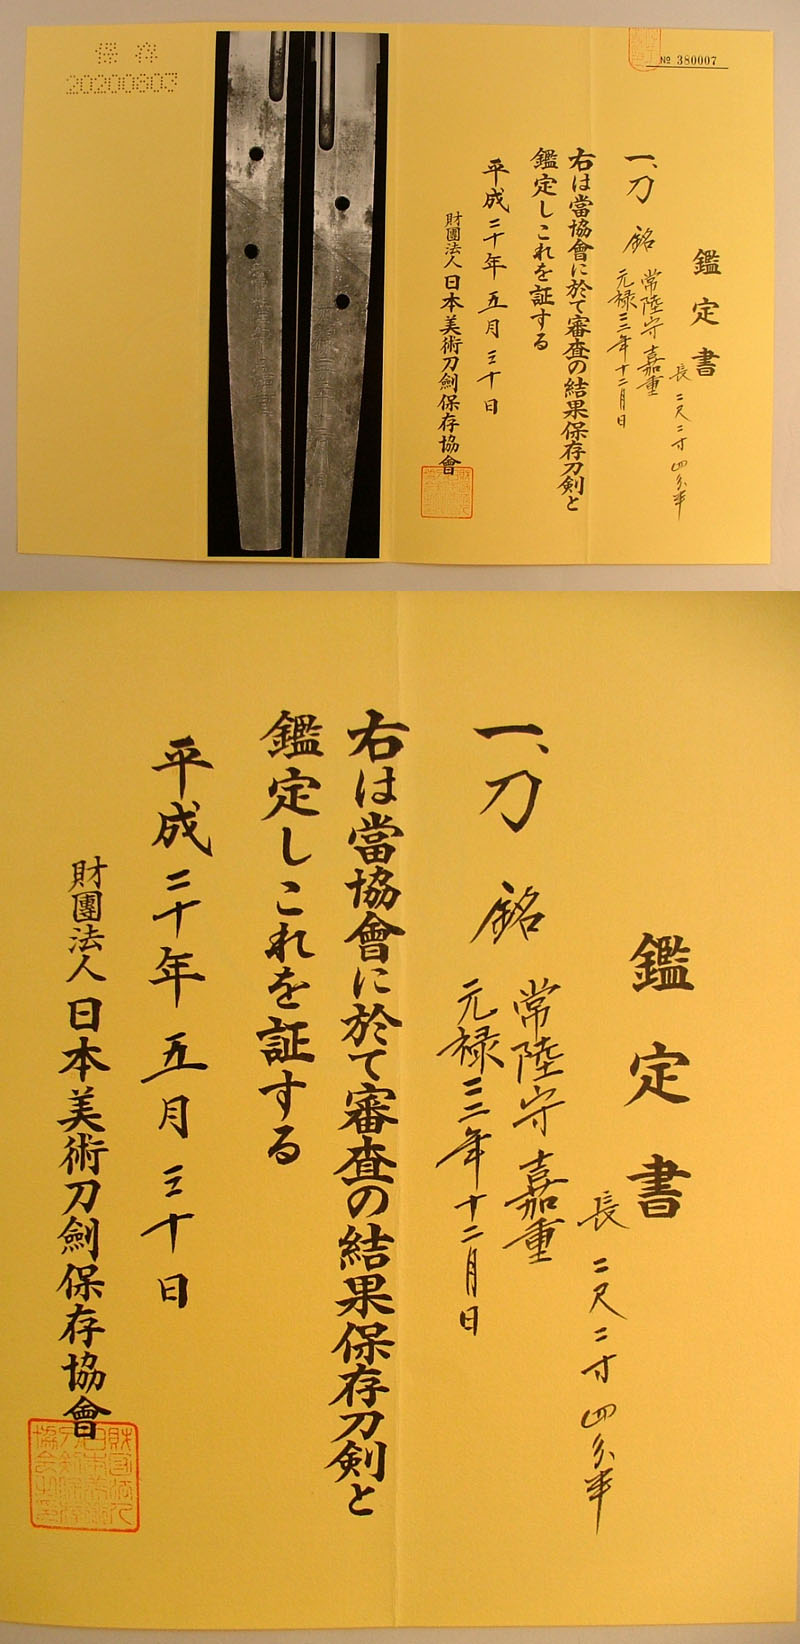 保存
20200803
№ 380007
鑑定書
長 二尺二寸四分半
一、刀 銘 常陸守嘉重
元禄二二年十二月日
右は當協會に於て審査の結果保存刀剣と
鑑定しこれを証する
平成二十年五月三十日
財團法人日本美術刀劍保存協會
鑑定書
長 二尺二寸四分半
一、刀 銘 常陸守嘉重
元禄二二年十二月日
右は當協會に於て審査の結果保存刀剣と
鑑定しこれを証する
平成二十年五月三十日
財團法人日本美術刀劍保存協會